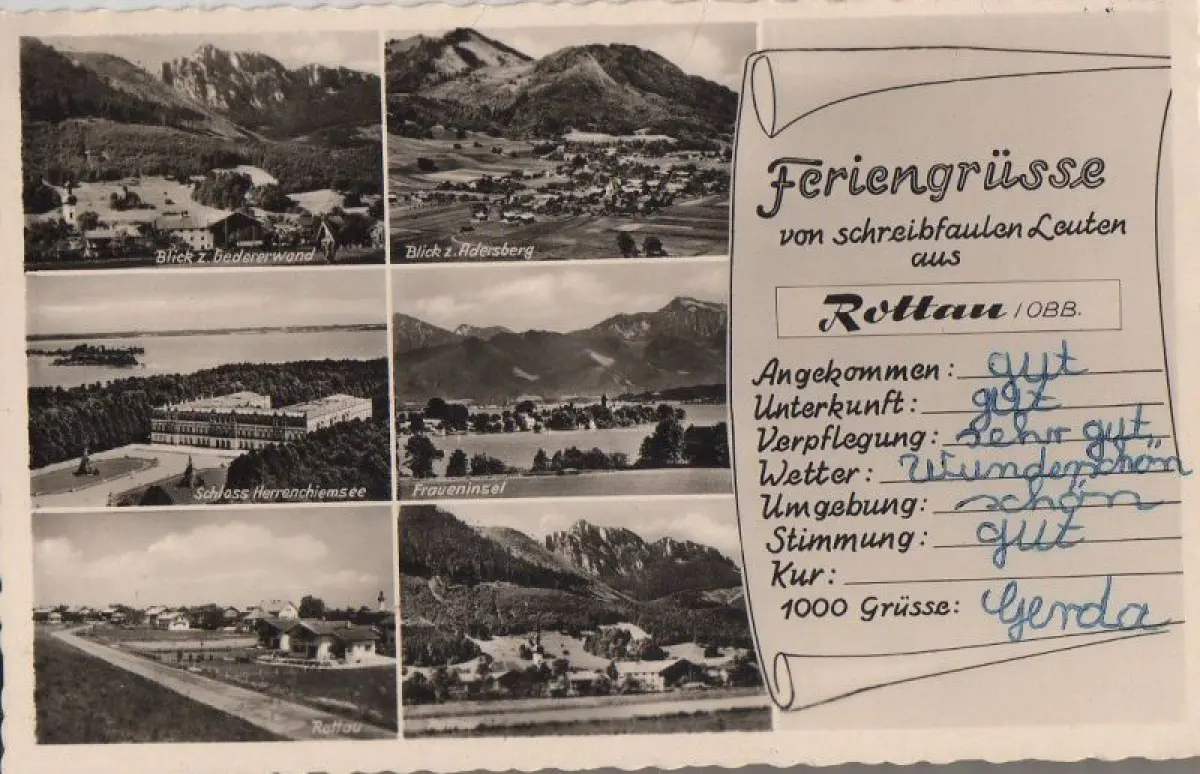 Blick z. Gedererwand
Blick z. Adersberg
Schloss Herrenchiemsee
Fraueninsel
Rottau
Feriengrüsse
von schreibfaulen Leuten
aus
Rottau / OBB.
Angekommen: gut
Unterkunft: gut
Verpflegung: sehr gut
Wetter: Wunderschön
Umgebung: schön
Stimmung: gut
Kur:
1000 Grüsse: Gerda